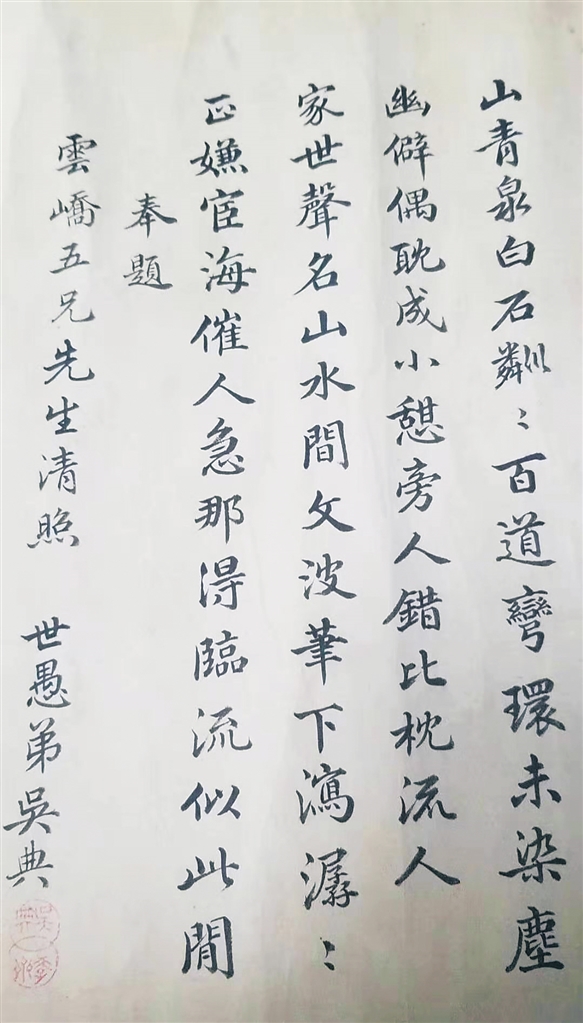 山青泉白石粼〻百道彎環未染塵
幽僻偶耽成小憩旁人錯比枕流人
家世聲名山水間文波筆下瀉潺〻
正嫌宦海催人急那得臨流似此閒
奉題
雲嶠五兄先生清照
世愚弟吳典